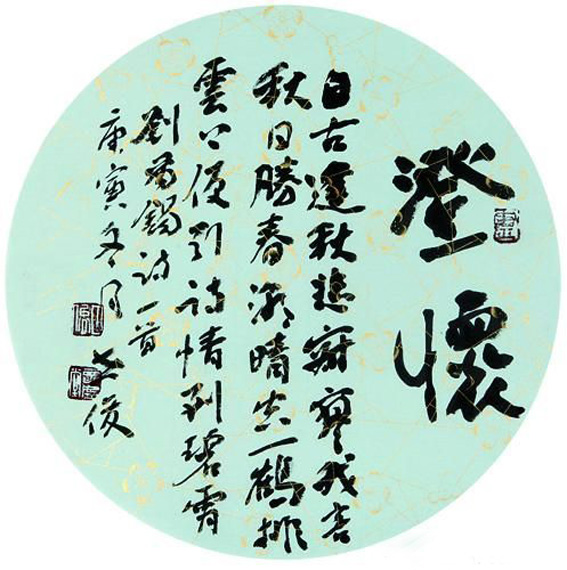 澄懷
自古逢秋悲寂寥我言
秋日勝春潮晴空一鶴排
雲上便引詩情到碧霄
劉禹錫詩一首
庚寅冬月 俊